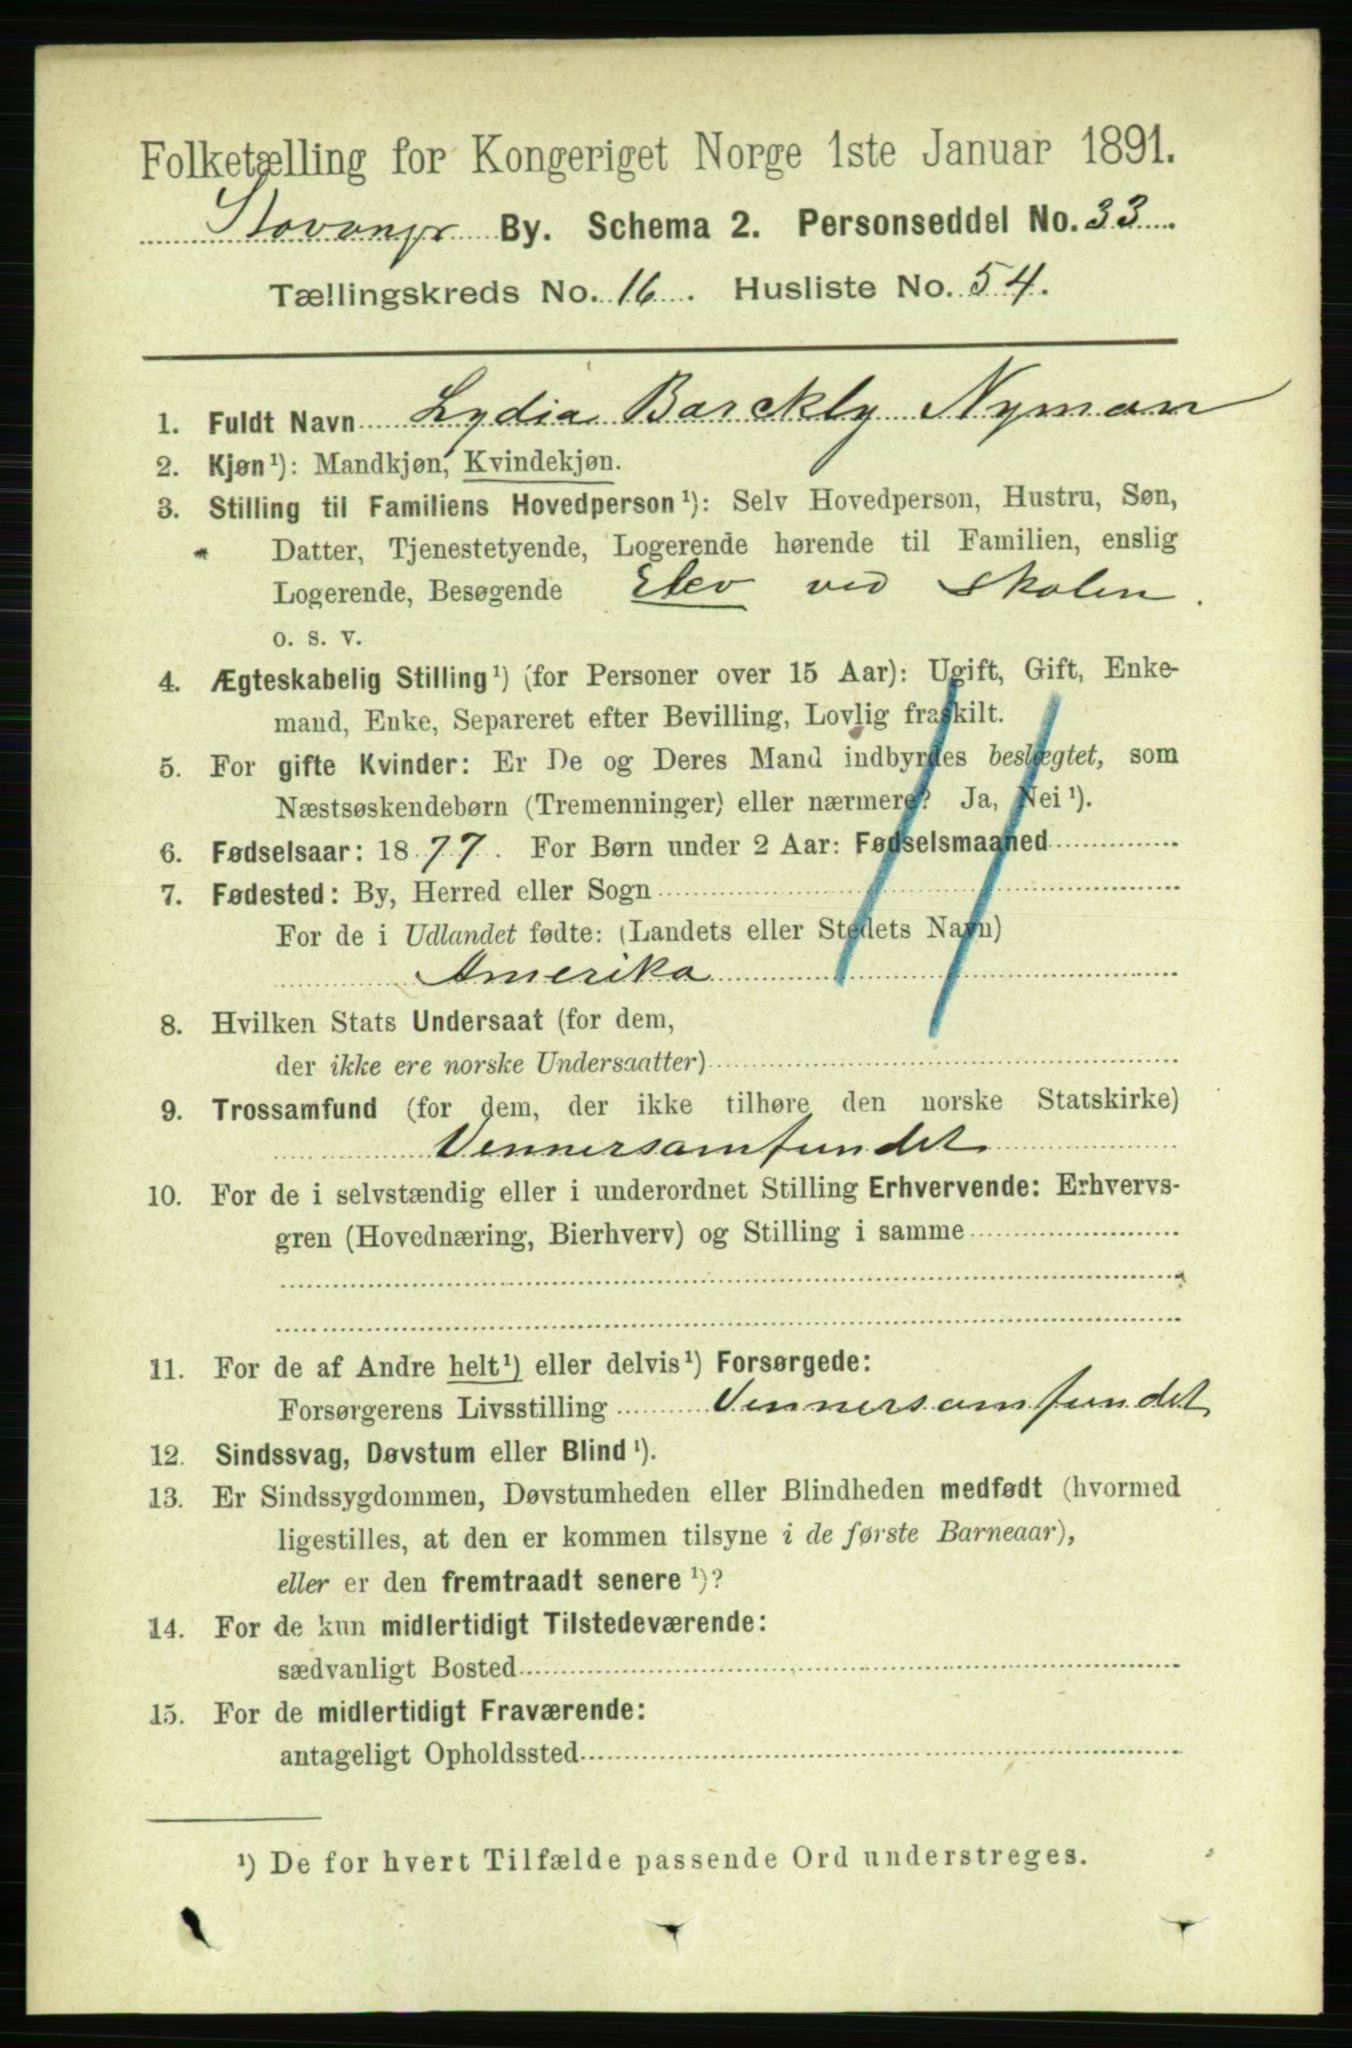 Folketælling for Kongeriget Norge 1ste Januar 1891.
Stavanger By. Schema 2. Personseddel No. 33.
Tællingskreds No. 16. Husliste No. 54.
1. Fuldt Navn Lydia Barckly Nyman
2. Kjøn¹): Mandkjøn, Kvindekjøn.
3. Stilling til Familiens Hovedperson¹): Selv Hovedperson, Hustru, Søn,
Datter, Tjenestetyende, Logerende hørende til Familien, enslig
Logerende, Besøgende Elev ved Skolen.
o. s. v.
4. Ægteskabelig Stilling¹) (for Personer over 15 Aar): Ugift, Gift, Enke-
mand, Enke, Separeret efter Bevilling, Lovlig fraskilt.
5. For gifte Kvinder: Er De og Deres Mand indbyrdes beslægtet, som
Næstsøskendebørn (Tremenninger) eller nærmere? Ja, Nei¹).
6. Fødselsaar: 1877. For Børn under 2 Aar: Fødselsmaaned
7. Fødested: By, Herred eller Sogn
For de i Udlandet fødte: (Landets eller Stedets Navn)
Amerika
8. Hvilken Stats Undersaat (for dem,
der ikke ere norske Undersaatter)
9. Trossamfund (for dem, der ikke tilhøre den norske Statskirke)
Vennersamfundet
10. For de i selvstændig eller i underordnet Stilling Erhvervende: Erhvervs-
gren (Hovednæring, Bierhverv) og Stilling i samme
11. For de af Andre helt¹) eller delvis¹) Forsørgede:
Forsørgerens Livsstilling Vennersamfundet
12. Sindssvag, Døvstum eller Blind¹).
13. Er Sindssygdommen, Døvstumheden eller Blindheden medfødt (hvormed
ligestilles, at den er kommen tilsyne i de første Barneaar),
eller er den fremtraadt senere¹)?
14. For de kun midlertidigt Tilstedeværende:
sædvanligt Bosted
15. For de midlertidigt Fraværende:
antageligt Opholdssted
¹) De for hvert Tilfælde passende Ord understreges.